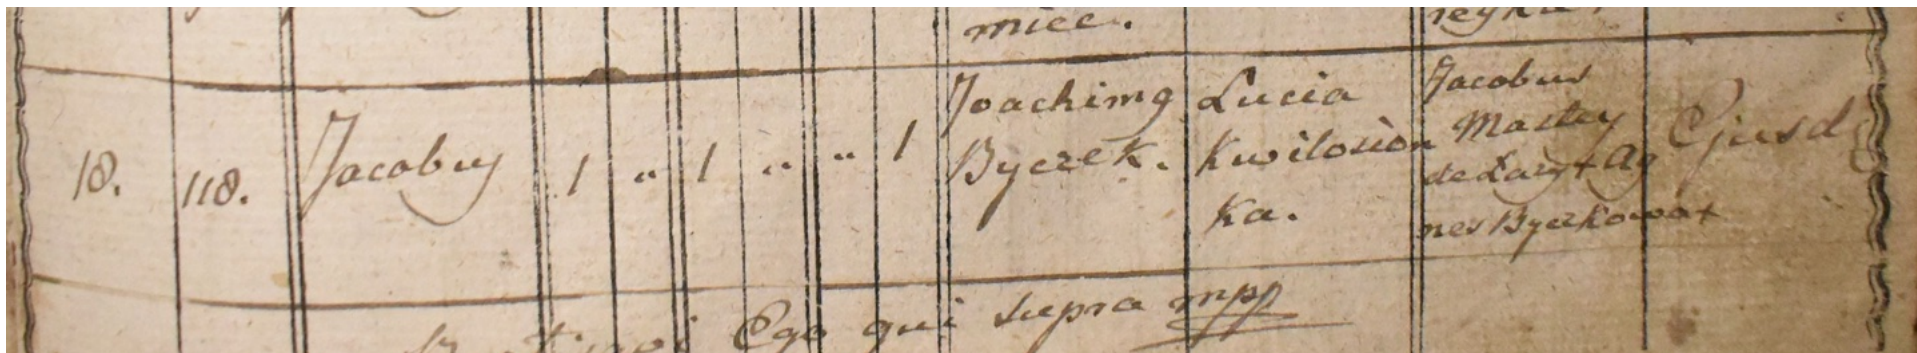 miec.
18. 118. Jacobus 1 " 1 " " 1
Joachim9
Byczek.
Lucia
Kwilosion
ka.
Jacobus
Mastey
de Łazy + Ag
nes Byczkowa +
Ejusd
Ego qui supra mpp